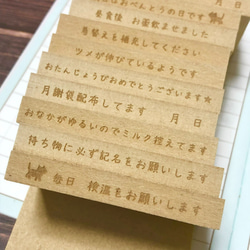 おべんとうの日です
昼食後 お薬飲ませました
着替えを補充してください
ツメが伸びているようです
おたんじょうびおめでとうございます☆
月謝袋配布してます 月 日
おなかがゆるいのでミルク控えてます
持ち物に必ず記名をお願いします
毎日 検温をお願いします